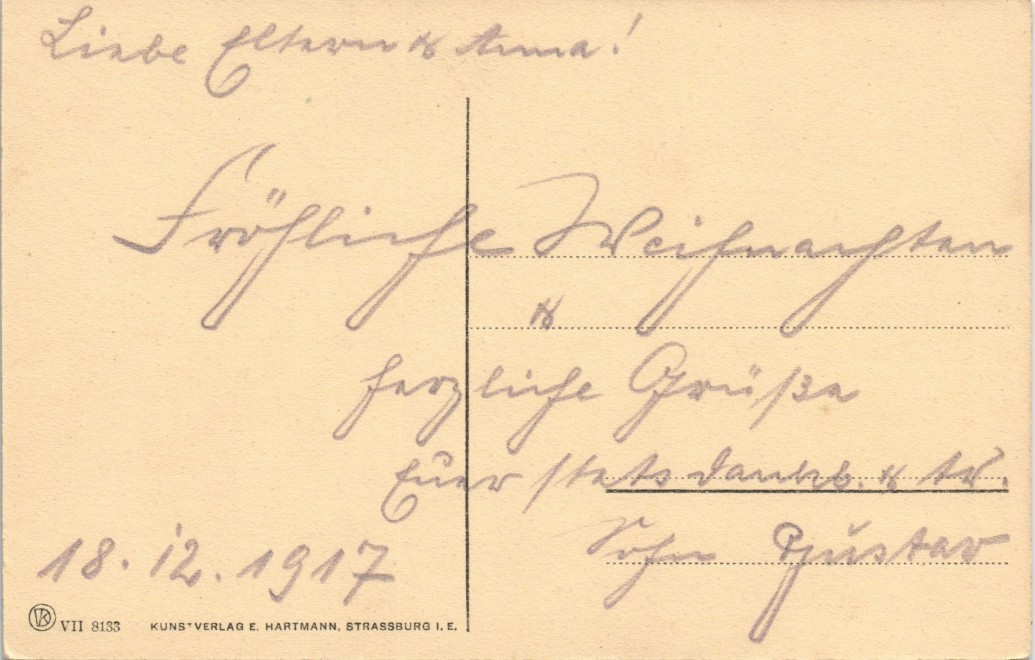 Liebe Eltern & Anna!
Fröhliche Weihnachten
&
herzliche Grüße
Euer stets dankb. & tr.
Sohn Gustav
18.12.1917
VII 8133 KUNSTVERLAG E. HARTMANN, STRASSBURG I. E.